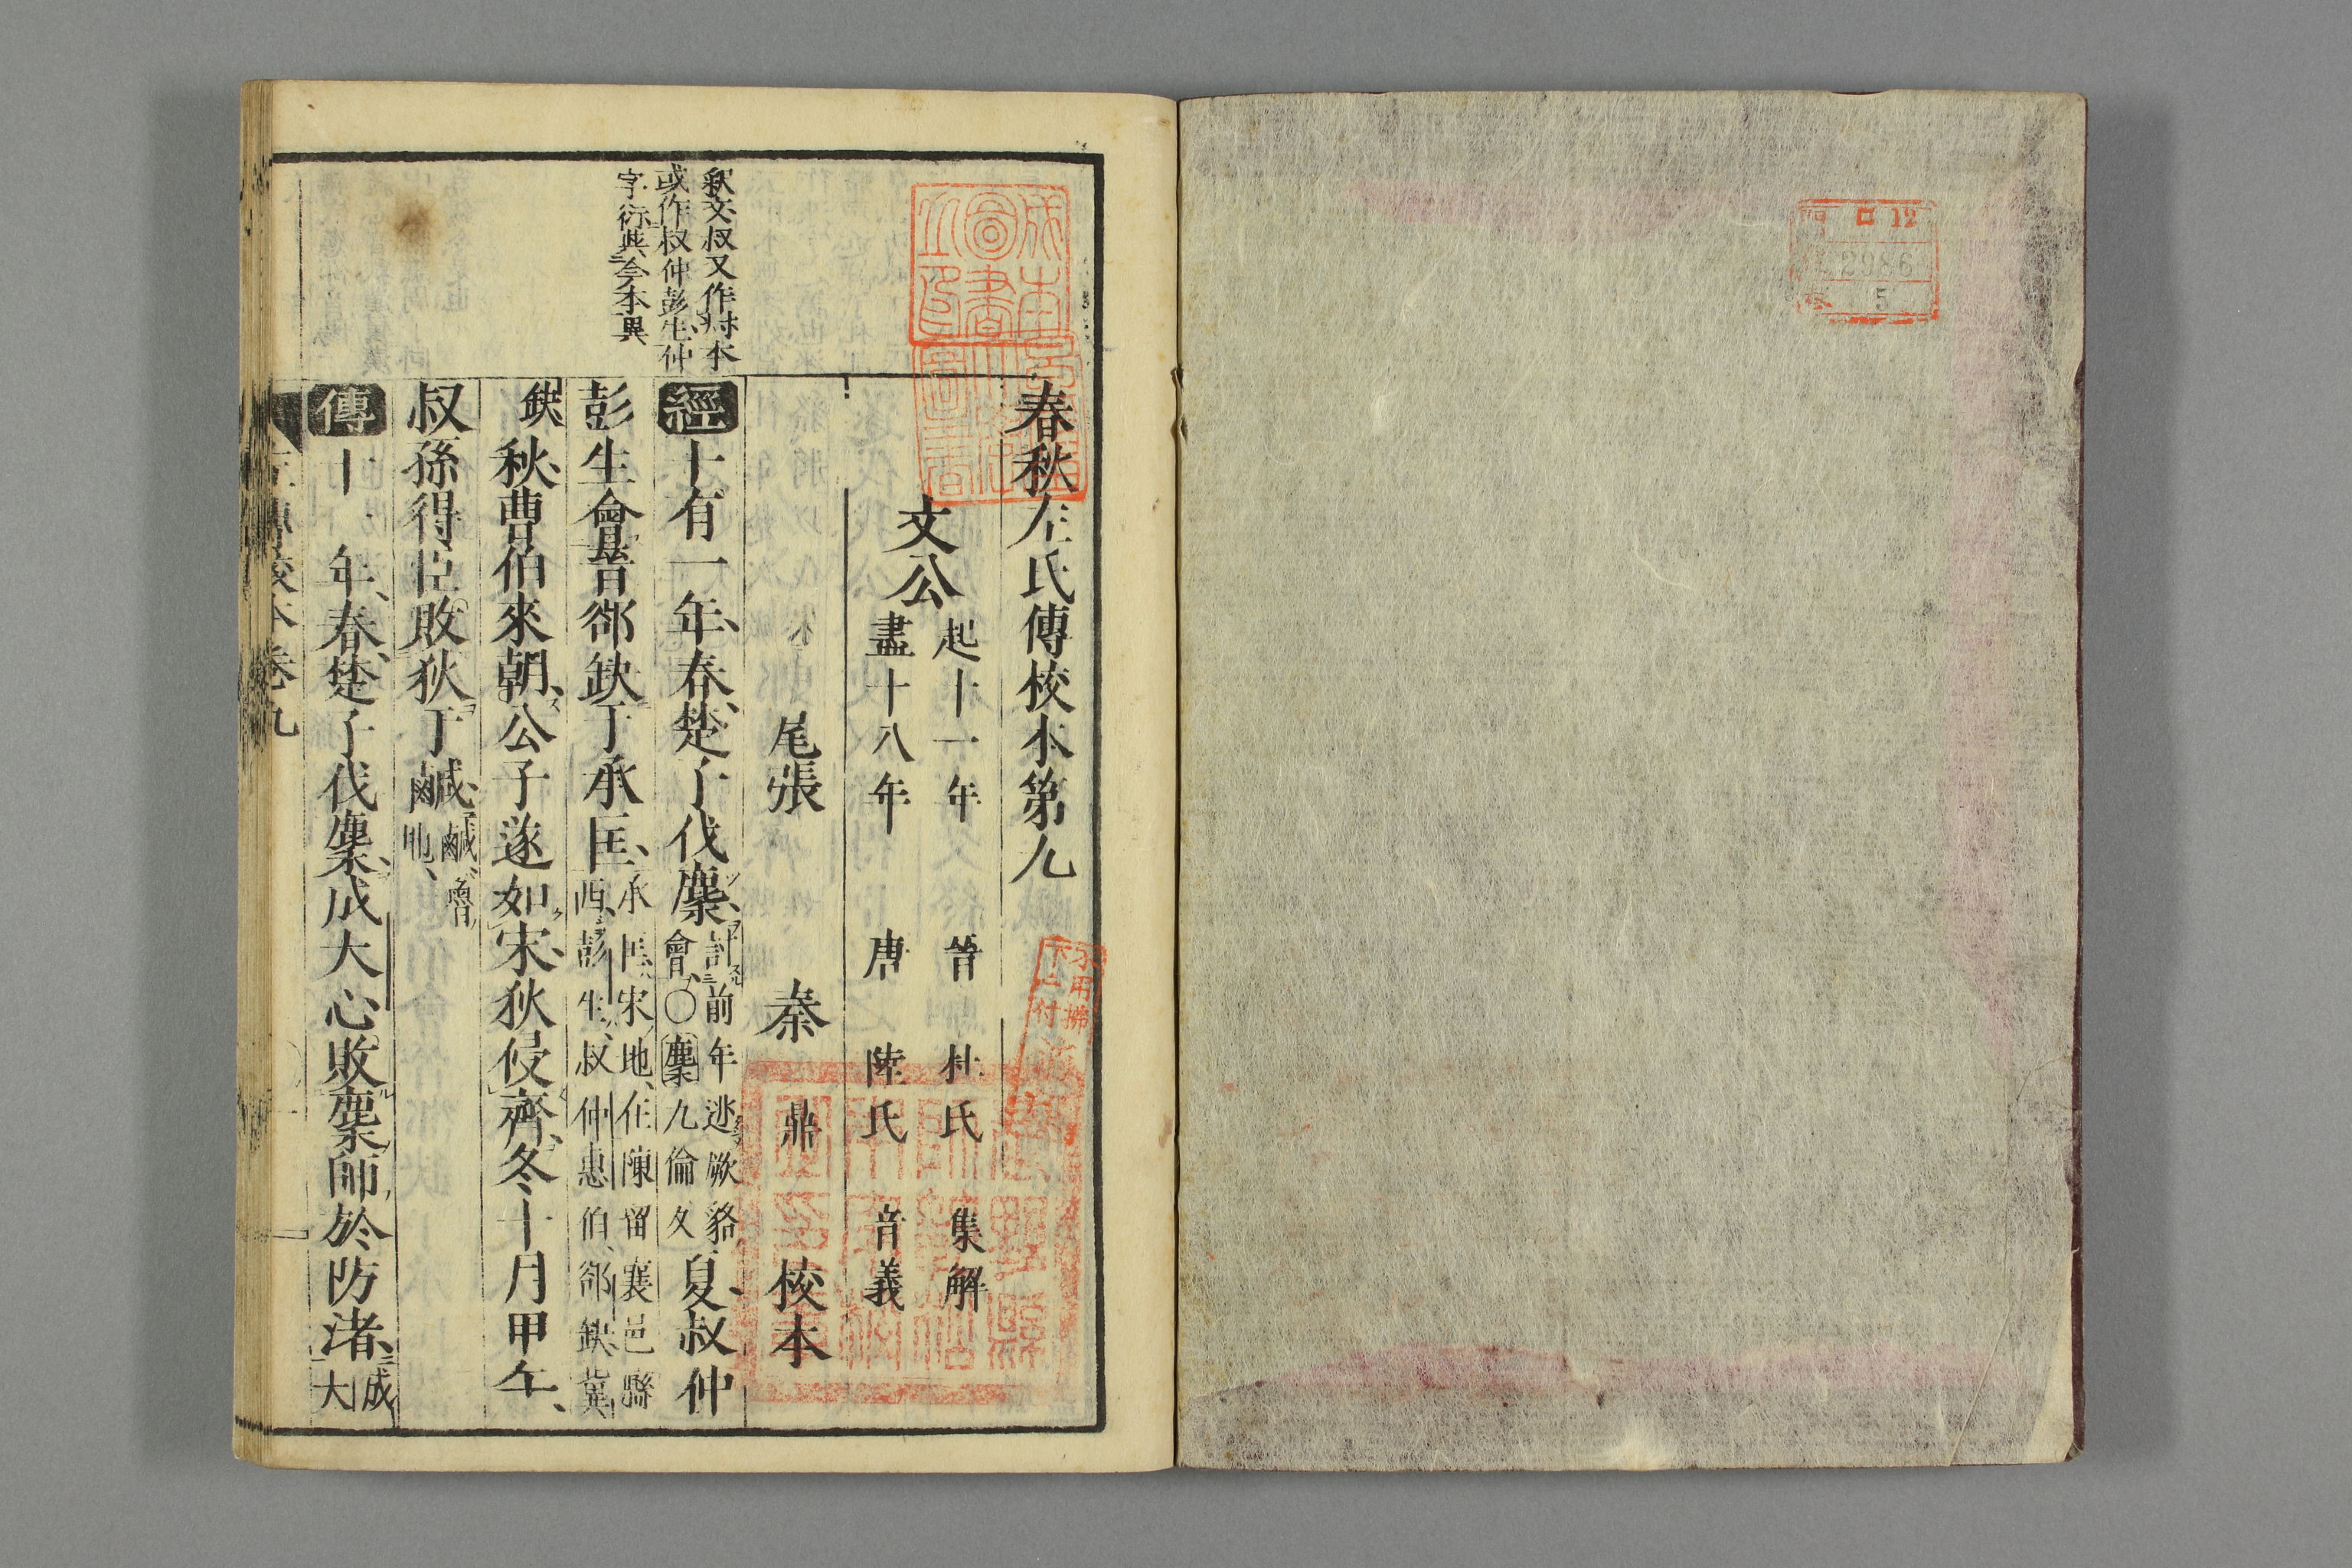 ロ12
2986
5
春秋左氏傳校本第九
文公
起十一年
盡十八年
晉 杜氏 集解
唐 陸氏 音義
尾張 秦 鼎 校本
釈文叔又作村本
或作叔仲彭生仲
字衍與今本異
經十有一年春楚子伐麇
討前年逃厥貉
會〇麇九倫反
夏叔仲
彭生會晉郤缺于承匡
承匡宋地在陳留襄邑縣
西彭生叔仲惠伯郤缺冀
缺
秋曹伯來朝公子遂如宋狄侵齊冬十月甲午
叔孫得臣敗狄于鹹
鹹魯
地
傳十一年春楚子伐麇成大心敗麇師於防渚
成
大
左傳校本卷九